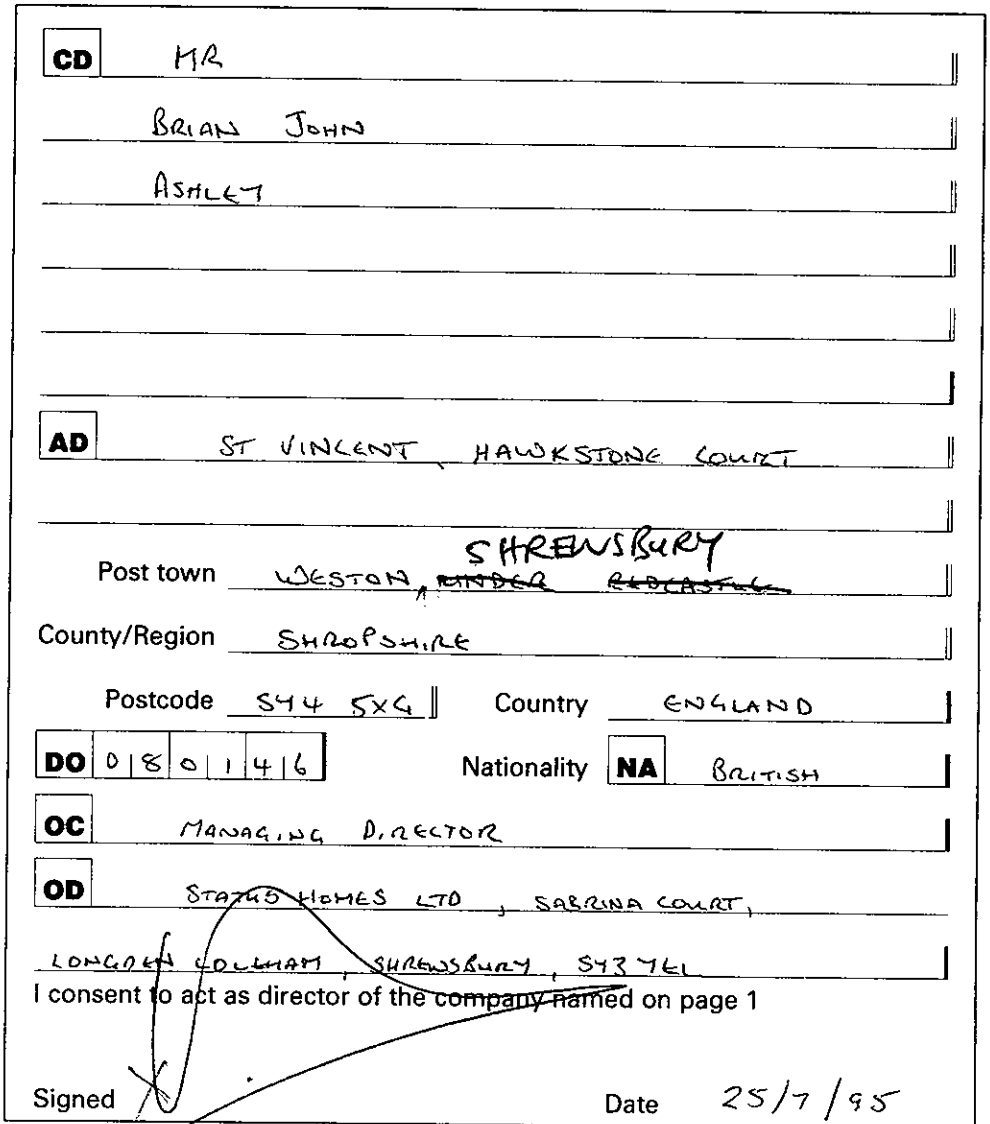 CD MR
BRIAN JOHN
ASHLEY
AD ST VINCENT, HAWKSTONE COURT
SHREWSBURY
Post town WESTON, UNDER REDCASTLE
County/Region SHROPSHIRE
Postcode SY4 5XG Country ENGLAND
DO 08 01 46 Nationality NA BRITISH
OC MANAGING DIRECTOR
OD STATUS HOMES LTD, SABRINA COURT,
LONGDEN COLEHAM, SHREWSBURY, SY3 7EL
I consent to act as director of the company named on page 1
Signed X Date 25/7/95